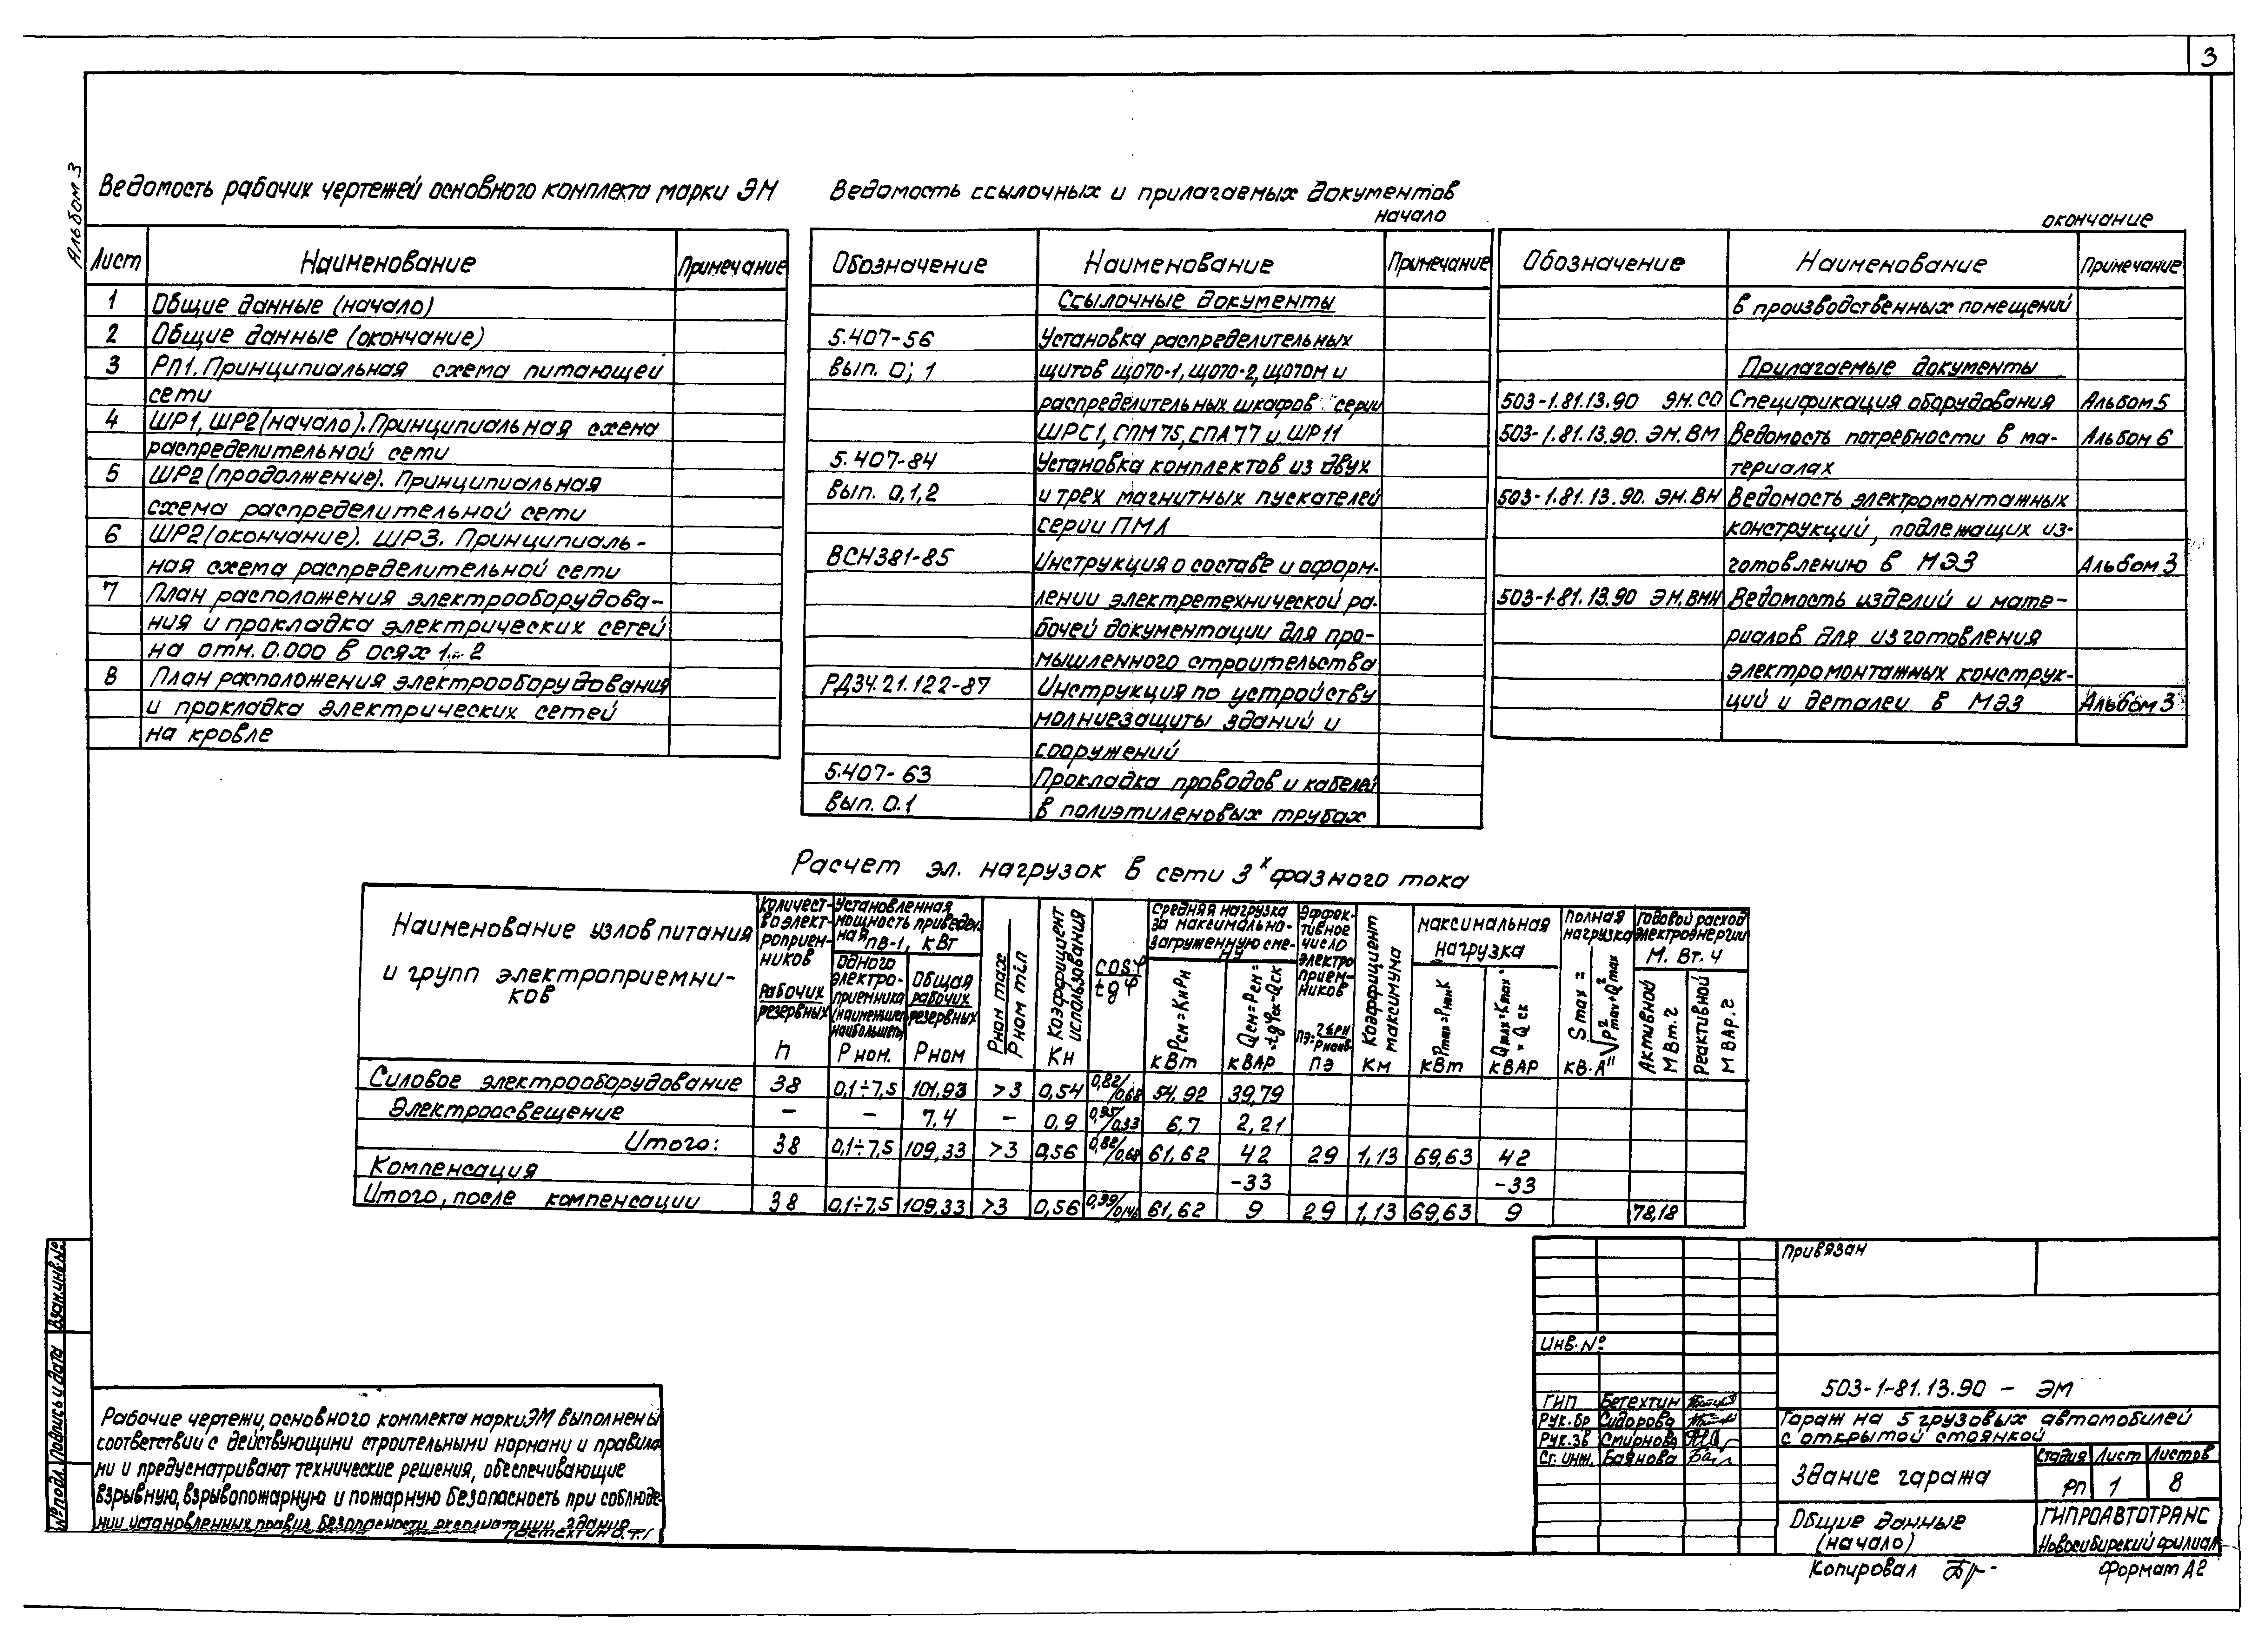 3
Альбом 3
Ведомость рабочих чертежей основного комплекта марки ЭМ
Лист Наименование Примечание
1 Общие данные (начало)
2 Общие данные (окончание)
3 РП1. Принципиальная схема питающей
сети
4 ШР1, ШР2 (начало). Принципиальная схема
распределительной сети
5 ШР2 (продолжение). Принципиальная
схема распределительной сети
6 ШР2 (окончание). ШР3. Принципиаль-
ная схема распределительной сети
7 План расположения электрооборудова-
ния и прокладка электрических сетей
на отм. 0.000 в осях 1-2
8 План расположения электрооборудования
и прокладка электрических сетей
на кровле
Ведомость ссылочных и прилагаемых документов
начало
Обозначение Наименование Примечание
Ссылочные документы
5.407-56 Установка распределительных
вып. 0; 1 щитов ЩО70-1, ЩО70-2, ЩО70М и
распределительных шкафов серии
ШРС1, СПМ75, СПА77 и ШР11
5.407-84 Установка комплектов из двух
вып. 0,1,2 и трех магнитных пускателей
серии ПМЛ
ВСН381-85 Инструкция о составе и оформ-
лении электретехнической ра-
бочей документации для про-
мышленного строительства
РД34.21.122-87 Инструкция по устройству
молниезащиты зданий и
сооружений
5.407-63 Прокладка проводов и кабелей
вып. 0.1 в полиэтиленовых трубах
окончание
Обозначение Наименование Примечание
в производственных помещений
Прилагаемые документы
503-1.81.13.90 ЭМ.СО Спецификация оборудования Альбом 5
503-1.81.13.90. ЭМ.ВМ Ведомость потребности в ма- Альбом 6
териалах
503-1.81.13.90. ЭМ.ВН Ведомость электромонтажных
конструкций, подлежащих из-
готовлению в МЭЗ Альбом 3
503-1.81.13.90 ЭМ.ВМН Ведомость изделий и мате-
риалов для изготовления
электромонтажных конструк-
ций и деталей в МЭЗ Альбом 3
Расчет эл. нагрузок в сети 3х фазного тока
Наименование узлов питания
и групп электроприемни-
ков
Количест-
во элект-
роприем-
ников
Рабочих
резервных
n
Установленная
мощность приведен-
ная ПВ-1, кВт
одного
электро-
приемника
(наименьшего
наибольшего)
Рном.
Общая
рабочих
резервных
Рном
Рном max
Рном min
Коэффициент
использования
Кн
cosφ
tgφ
Средняя нагрузка
за максимально-
загруженную сме-
ну
Рсм=КнРн
кВт
Qсм=Рсм=
кВАР
Эффек-
тивное
число
электро
прием-
ников
пэ
Коэффициент
максимума
Км
максимальная
нагрузка
кВт
Qmax=Kmax=
=Qск
кВАР
полная
нагрузка
Smax=
√P²max+Q²max
кВ·А
годовой расход
электроэнергии
М. Вт. ч
Активной
МВт.г
Реактивной
МВАР.г
Силовое электрооборудование 38 0,1÷7,5 101,93 >3 0,54 0,82/0,68 54,92 39,79
Электроосвещение — — 7,4 — 0,9 0,95/0,33 6,7 2,21
Итого: 38 0,1÷7,5 109,33 >3 0,56 0,82/0,68 61,62 42 29 1,13 69,63 42
Компенсация -33 -33
Итого, после компенсации 38 0,1÷7,5 109,33 >3 0,56 0,99/0,146 61,62 9 29 1,13 69,63 9 78,18
Взам.инв.№
Подпись и дата
№ подл.
Рабочие чертежи, основного комплекта марки ЭМ выполнены
соответствии с действующими строительными нормами и правила-
ми и предусматривают технические решения, обеспечивающие
взрывную, взрывопожарную и пожарную безопасность при соблюде-
нии установленных правил безопасности эксплуатации здания
Привязан
Инв.№
503-1-81.13.90 - ЭМ
ГИП Бетехтин
Рук.бр Сидорова
Рук.зв Смирнова
Ст. инж. Баянова
Гараж на 5 грузовых автомобилей
с открытой стоянкой
Здание гаража
Стадия Лист Листов
РП 1 8
Общие данные
(начало)
ГИПРОАВТОТРАНС
Новосибирский филиал
Копировал Формат А2